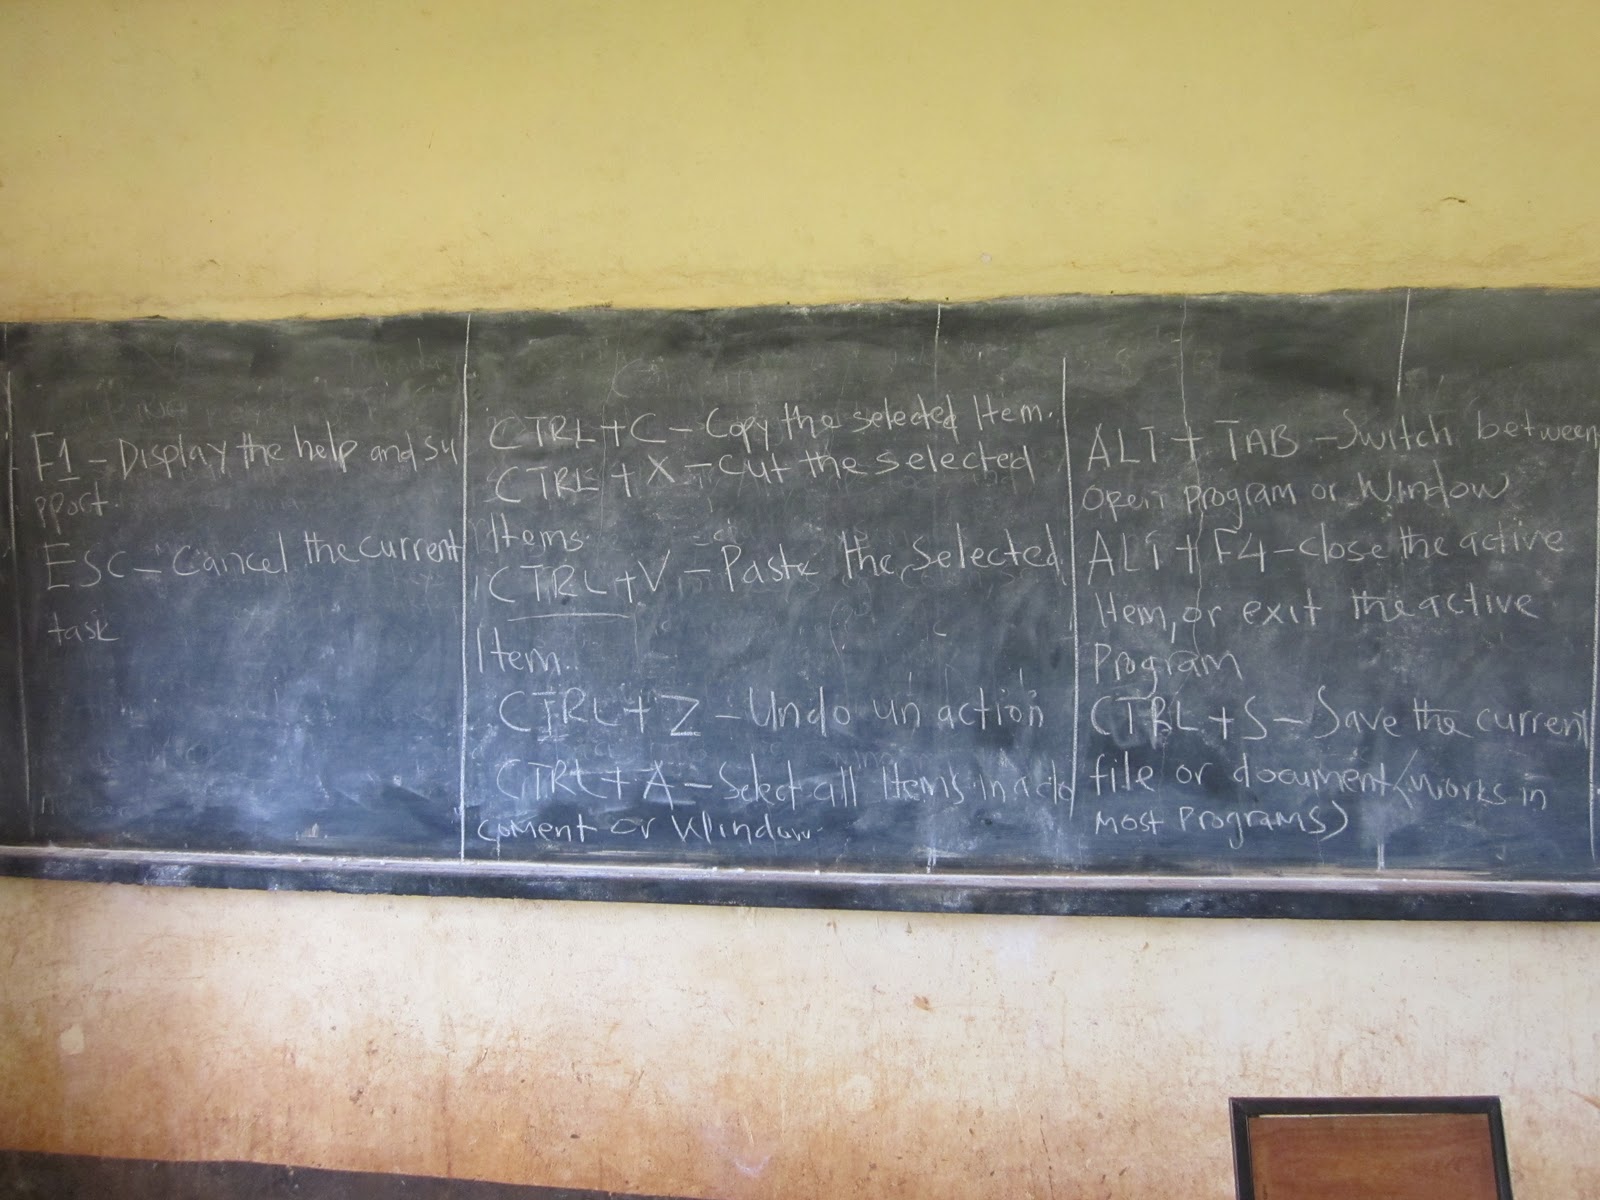 F1 - Display the help and su
pport.
ESC - Cancel the current
task
CTRL + C - Copy the selected Item.
CTRL + X - Cut the selected
Items.
CTRL + V - Paste the selected
Item..
CTRL + Z - Undo un action
CTRL + A - Select all Items in a do
coment or Window.
ALT + TAB - Switch between
open program or Window
ALT + F4 - close the active
Item, or exit the active
Program
CTRL + S - Save the current
file or document (works in
most programs)